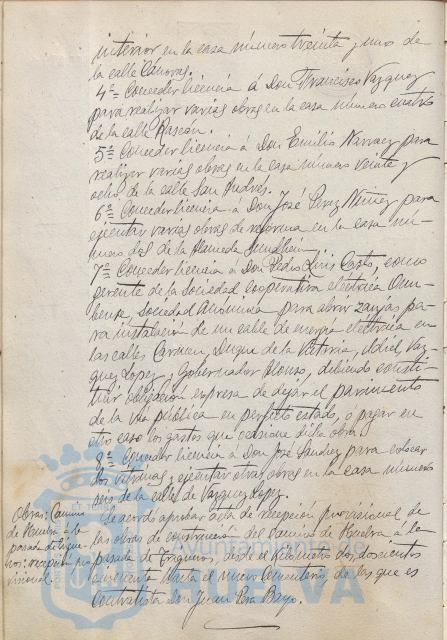 interior en la casa número treinta y uno de
la calle Cánovas.
4º= Conceder licencia á Don Francisco Vazquez
para realizar varias obras en la casa número cuatro
de la calle Rascon.
5º= Conceder licencia á Don Emilio Narvaez para
realizar varias obras en la casa número veinte y
ocho de la calle San Andrés.
6º= Conceder licencia á Don José Perez Nuñez para
ejecutar varias obras de reforma en la casa nú-
mero dos de la Alameda Sundheim.
7º= Conceder licencia á Don Pedro Luis Casto, como
gerente de la Sociedad Cooperativa eléctrica Onu-
bense, Sociedad Anónima para abrir zanjas pa-
ra instalación de un cable de energia eléctrica en
las calles Carmen, Duque de la Victoria, Odiel, Vaz-
quez Lopez, y Gobernador Alonso, debiendo consti-
tuir obligación expresa de dejar el pavimento
de la via pública en perfecto estado, o pagar en
otro caso los gastos que ocasione dicha obra.
8º= Conceder licencia á Don José Sanchez para colocar
dos vitrinas y ejecutar otras obras en la casa número
seis de la calle de Vazquez Lopez.
Obras: Camino
de Huelva á la
pasada de Trigue-
ros: recepción pro-
visional.
Se acordó aprobar acta de recepción provisional, de
las obras de construcción del Camino de Huelva á la
pasada de Trigueros, desde el kilómetro dos, doscientos
cincuenta hasta el nuevo Cementerio, de las que es
contratista don Juan Bayo.
Ayuntamiento de
HUELVA